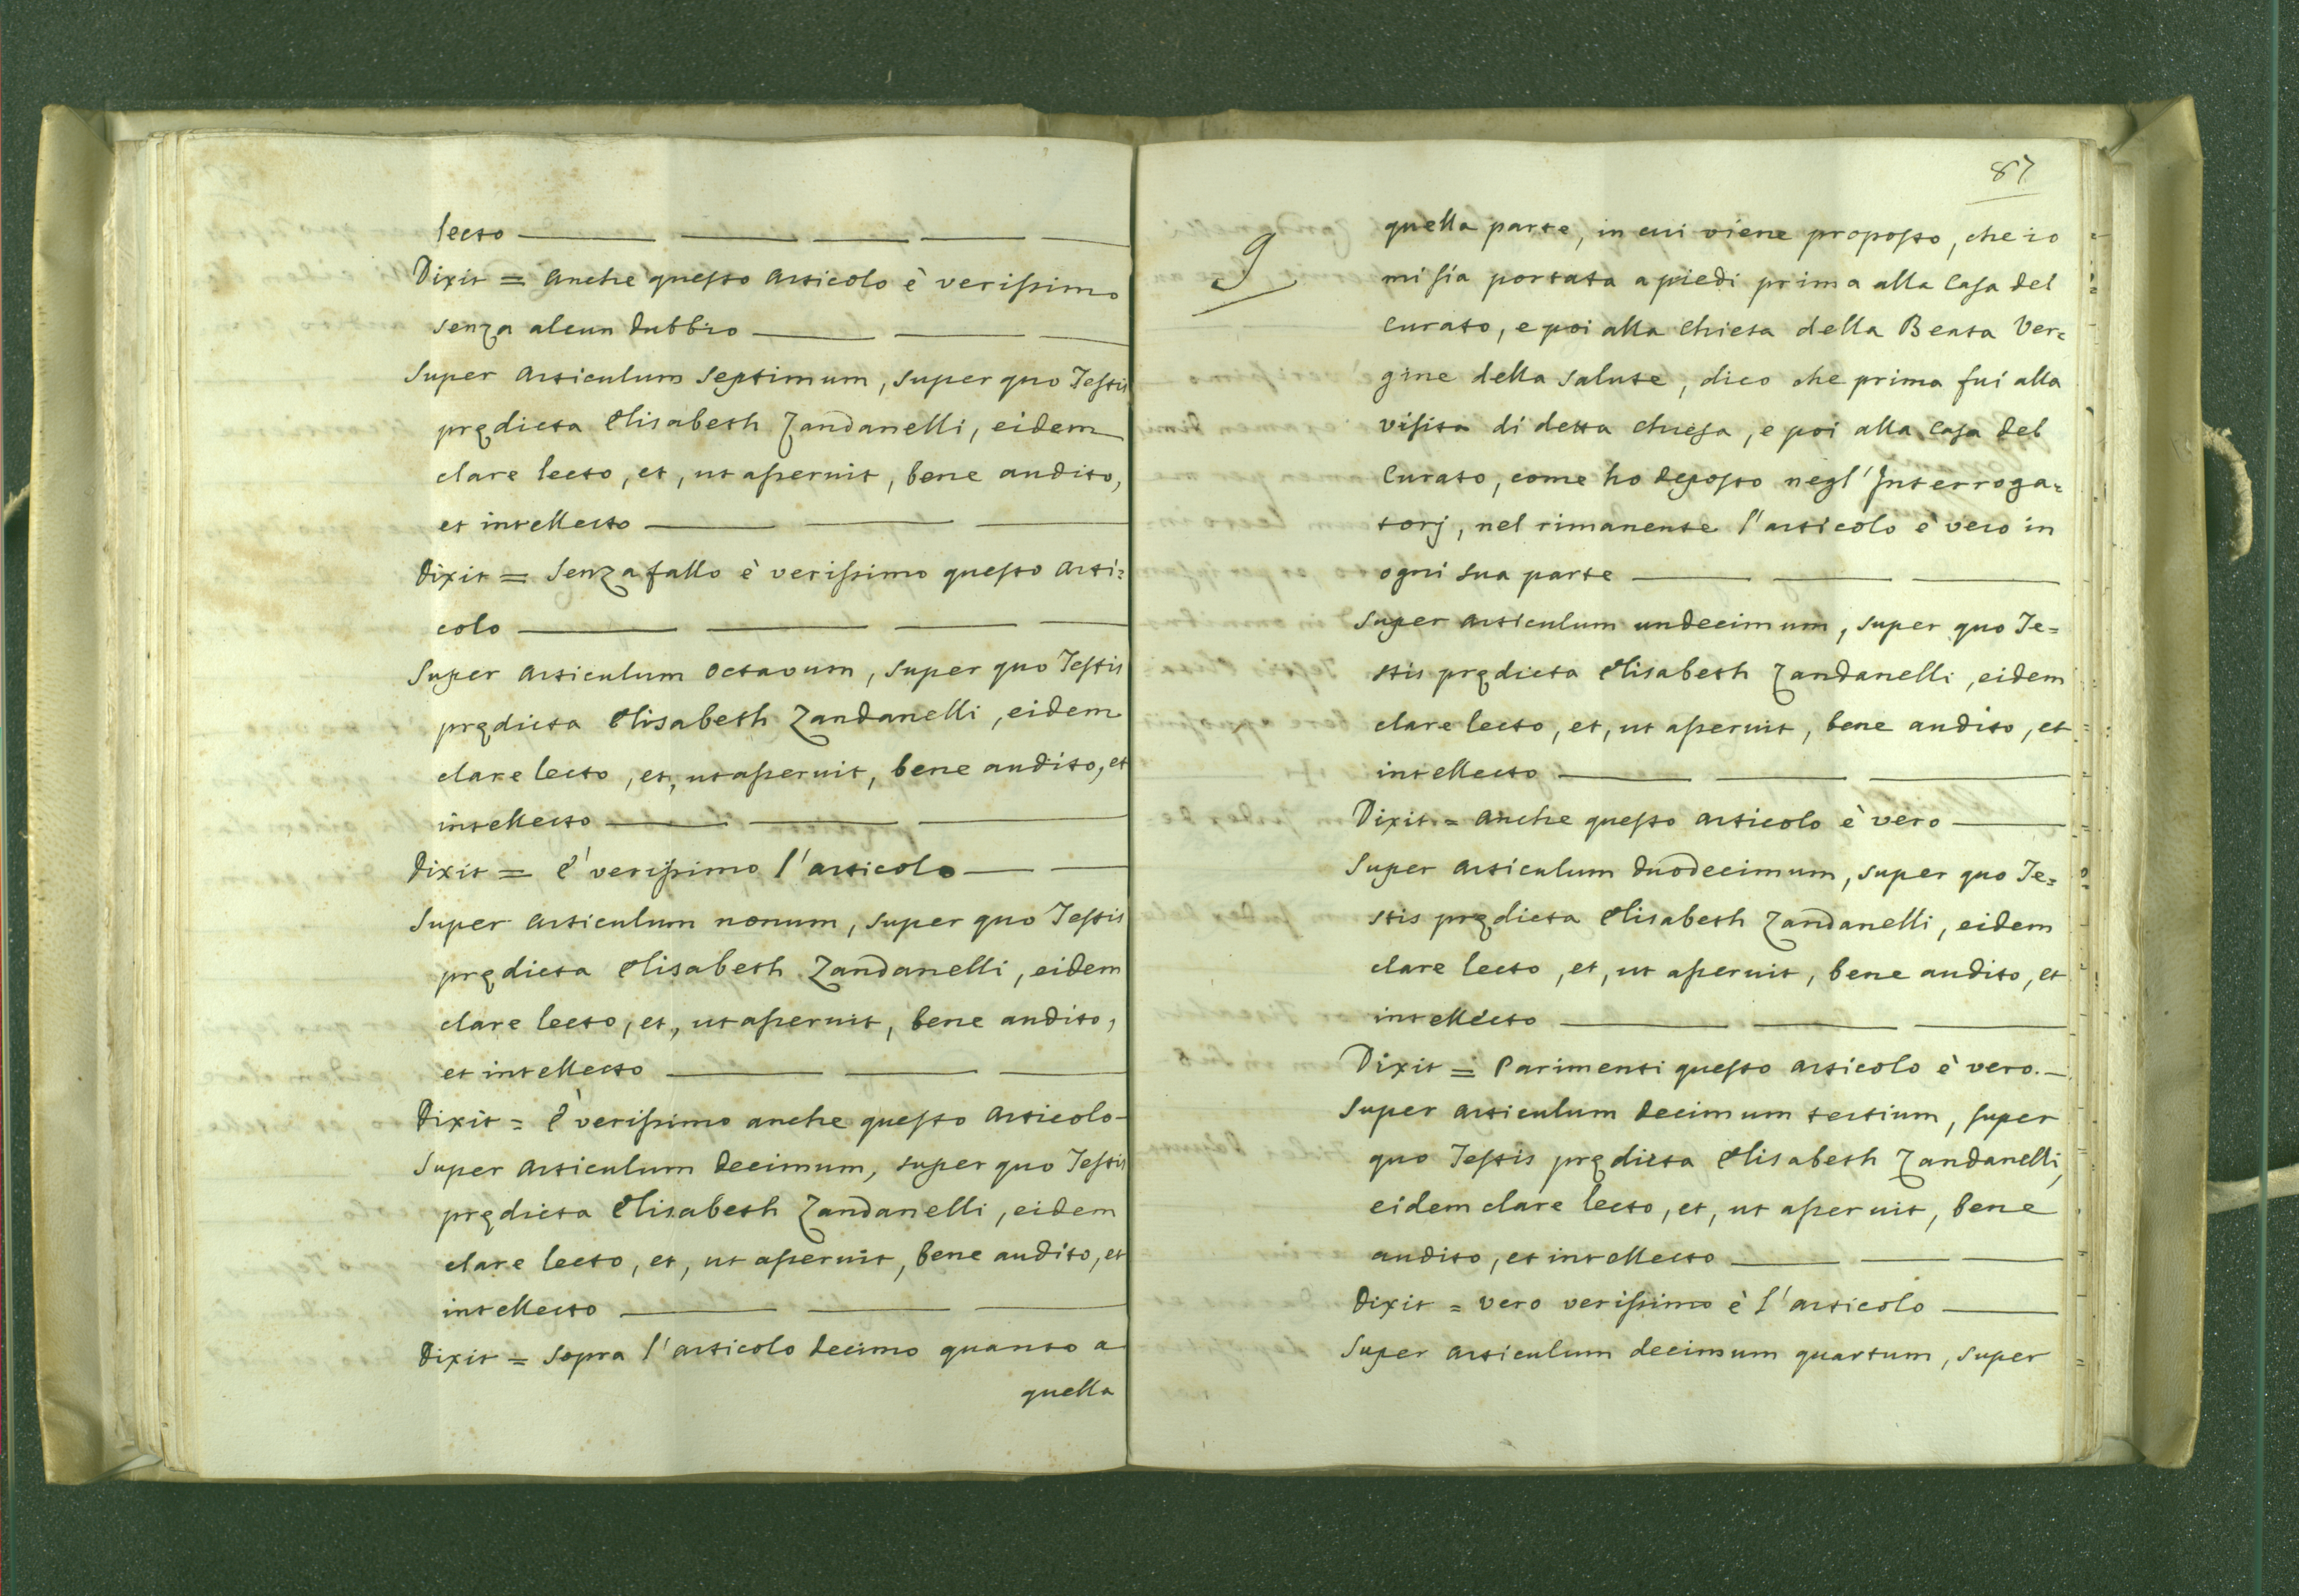 lecto
Dixit = Anche questo Articolo è verissimo
senza alcun dubbio
Super Articulum Septimum, super quo Testis
prędicta Elisabeth Zandanelli, eidem
clare lecto, et, ut asseruit, bene audito,
et intellecto
Dixit = Senza fallo è verissimo questo Arti=
colo
Super Articulum octavum, super quo Testis
prędicta Elisabeth Zandanelli, eidem
clare lecto, et, ut asseruit, bene audito, et
intellecto
Dixit = E' verissimo l'articolo
Super Articulum nonum, super quo Testis
prędicta Elisabeth Zandanelli, eidem
clare lecto, et, ut asseruit, bene audito,
et intellecto
Dixit = E' verissimo anche questo Articolo
Super Articulum Decimum, super quo Testis
prędicta Elisabeth Zandanelli, eidem
clare lecto, et, ut asseruit, bene audito, et
intellecto
Dixit = Sopra l'articolo decimo quanto a
quella
87
9
quella parte, in cui viene proposto, che io
mi sia portata a piedi prima alla Casa del
Curato, e poi alla Chiesa della Beata Ver=
gine della Salute, dico che prima fui alla
visita di detta Chiesa, e poi alla Casa del
Curato, come ho deposto negl'Interroga=
torj, nel rimanente l'articolo è vero in
ogni sua parte
Super Articulum undecimum, super quo Te=
stis prędicta Elisabeth Zandanelli, eidem
clare lecto, et, ut asseruit, bene audito, et
intellecto
Dixit = Anche questo articolo è vero
Super Articulum duodecimum, super quo Te=
stis prędicta Elisabeth Zandanelli, eidem
clare lecto, et, ut asseruit, bene audito, et
intellecto
Dixit = Parimenti questo articolo è vero.
Super Articulum decimum tertium, super
quo Testis prędicta Elisabeth Zandanelli,
eidem clare lecto, et, ut asseruit, bene
audito, et intellecto
Dixit = vero verissimo è l'articolo
Super Articulum decimum quartum, super